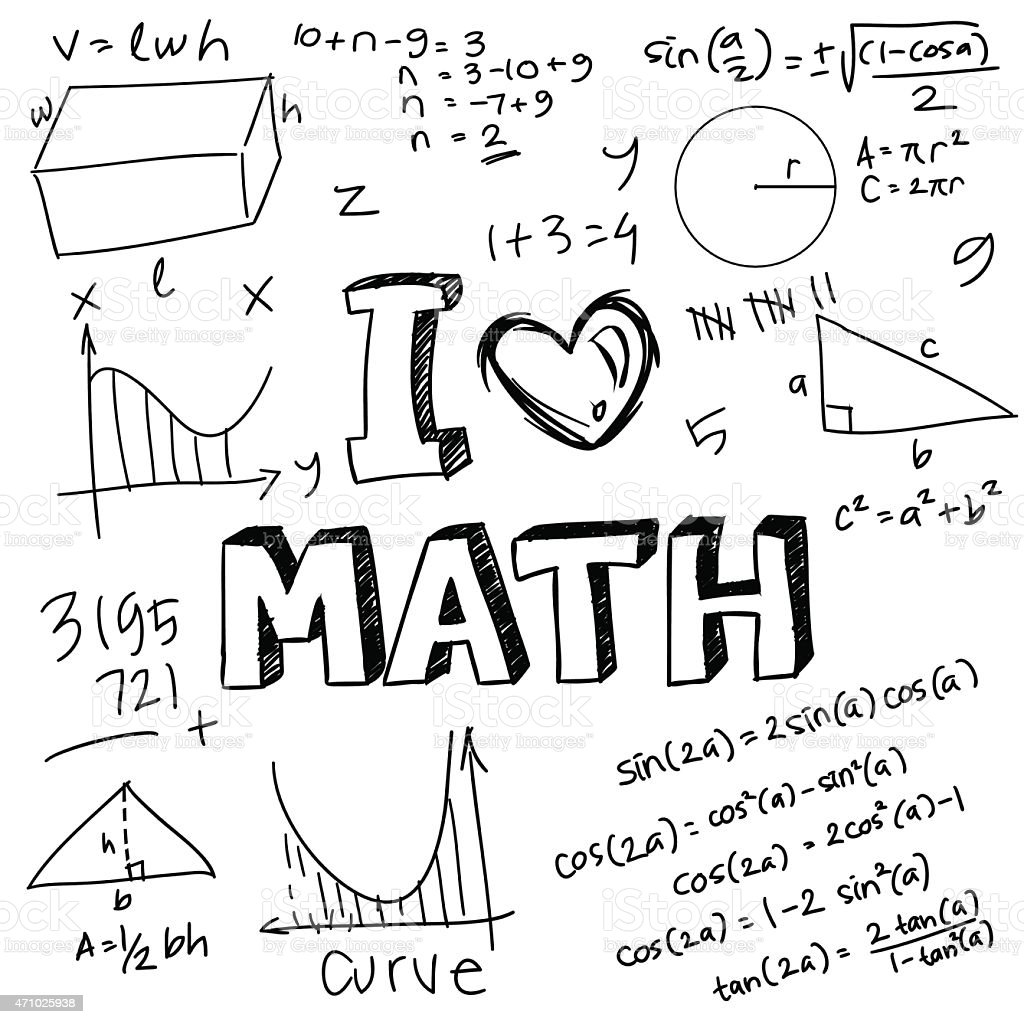 V = lwh
w
h
l
10+n-9 = 3
n = 3-10+9
n = -7+9
n = 2
sin(a/2) = ±√(1-cosa)/2
r
A = πr²
C = 2πr
z
y
1+3=4
9
x
x
y
I ♥
MATH
5
a
c
b
c² = a² + b²
3195
721
+
h
b
A = 1/2 bh
curve
sin(2a) = 2sin(a) cos(a)
cos(2a) = cos²(a) - sin²(a)
cos(2a) = 2cos²(a) -1
cos(2a) = 1-2 sin²(a)
tan(2a) = 2 tan(a) / 1-tan²(a)
iStock
by Getty Images™
471025938